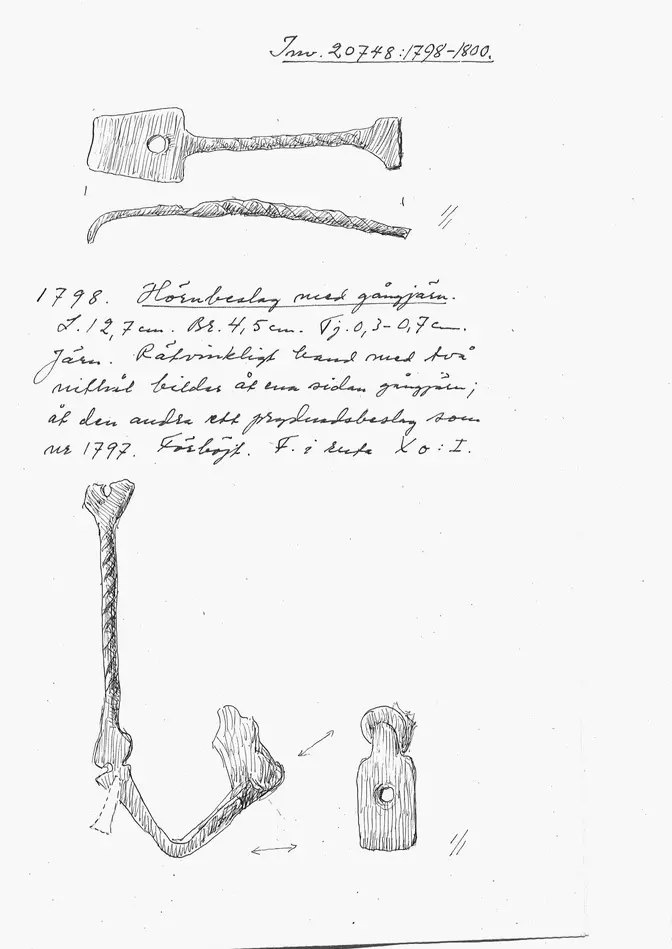 Inv. 20748:1798-1800.
1/1
1798. Hörnbeslag med gångjärn.
L. 12,7 cm. Br. 4,5 cm. Tj. 0,3-0,7 cm.
Järn. Rätvinkligt band med två
nithål bildar åt ena sidan gångjärn;
åt den andra ett prydnadsbeslag som
nr 1797. Förböjt. F. i ruta X o : I.
1/1